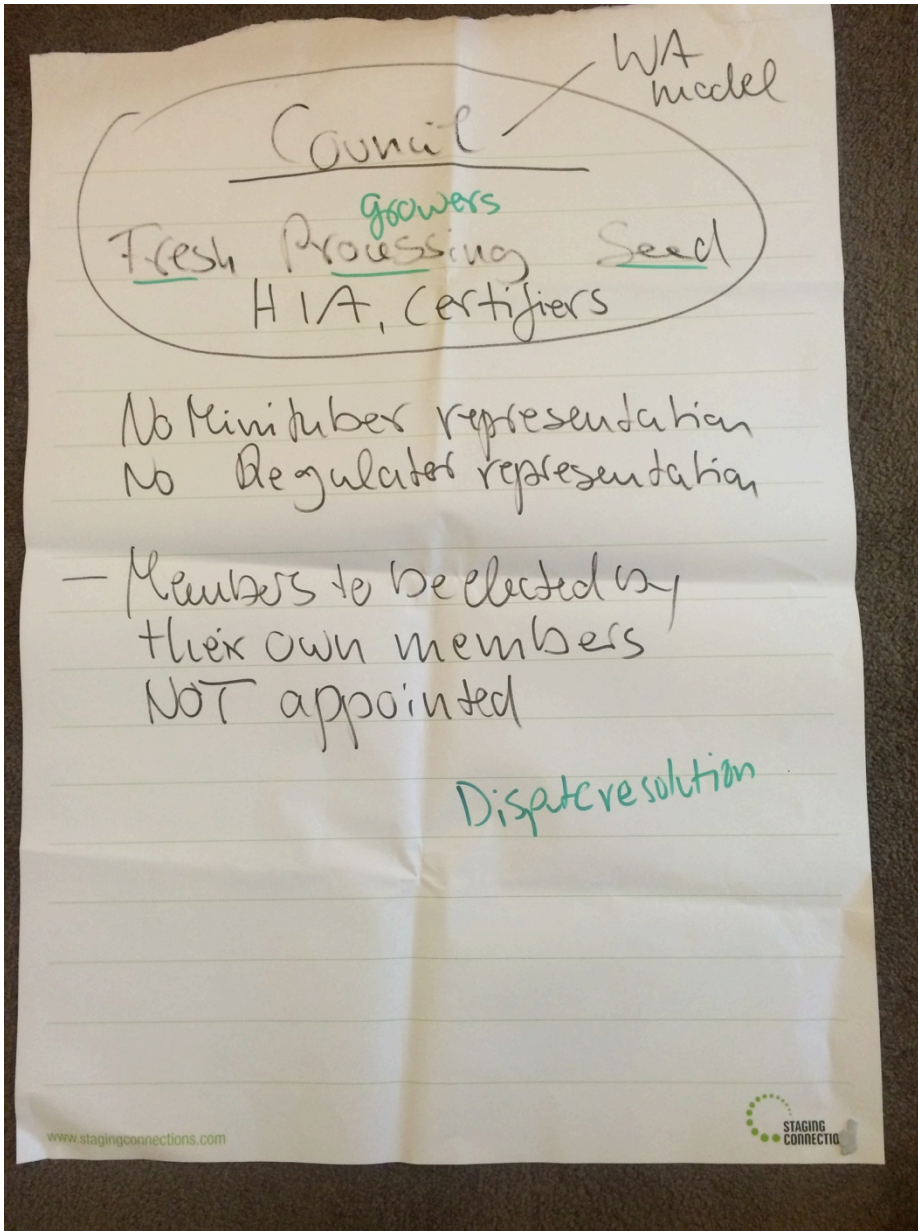 WA
model
Council
growers
Fresh Processing Seed
HIA, Certifiers
No Minituber representation
No Regulater representation
— Members to be elected by
their own members
NOT appointed
Dispute resolution
www.stagingconnections.com
STAGING
CONNECTIO